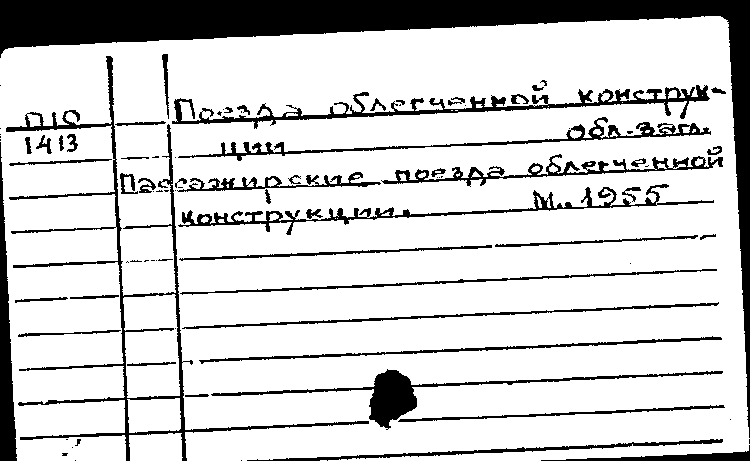 П10 Поезда облегченной конструк-
1413 ции обл.загл.
Пассажирские поезда облегченной
конструкции. М., 1955